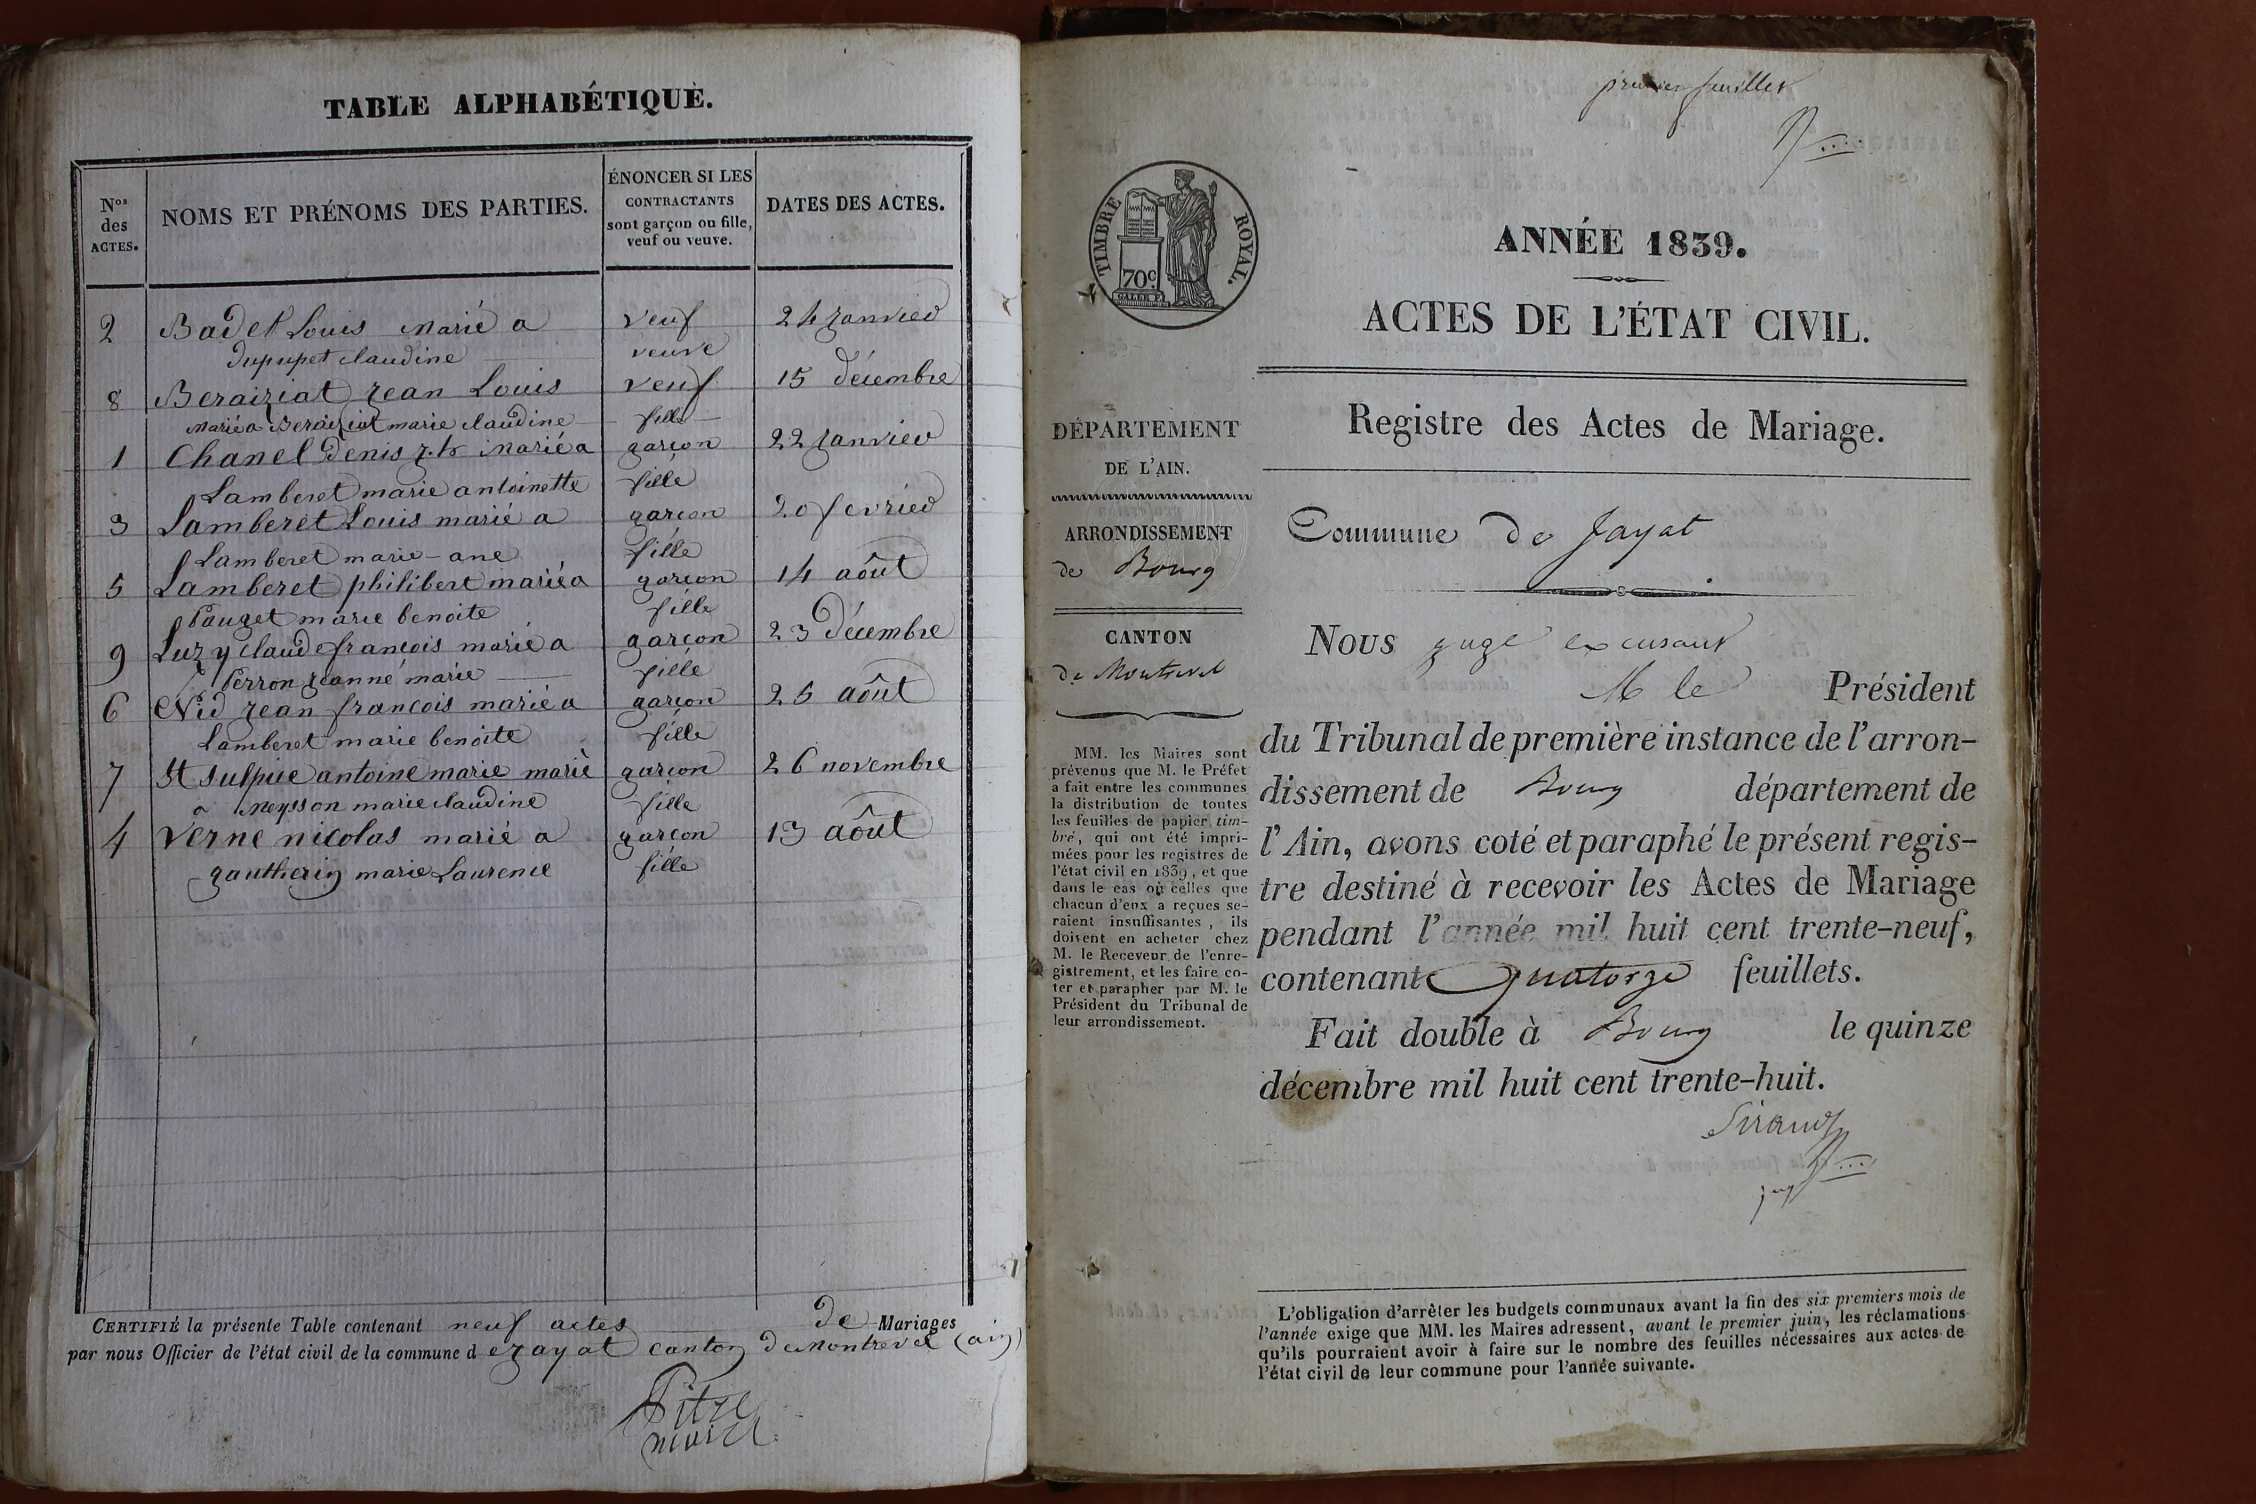 TABLE ALPHABÉTIQUE.
Nos des ACTES.
NOMS ET PRÉNOMS DES PARTIES.
ÉNONCER SI LES CONTRACTANTS sont garçon ou fille, veuf ou veuve.
DATES DES ACTES.
2 Badet Louis marié a veuf 24 janvier
dupupet claudine veuve
8 Beraiziat jean Louis veuf 15 décembre
marié a Beraiziat marie claudine fille
1 Chanel denis marié a garçon 22 janvier
Lamberet marie antoinette fille
3 Lamberet Louis marié a garçon 20 fevrier
Lamberet marie-ane fille
5 Lamberet philibert marié a garçon 14 août
Pauget marie benoite fille
9 Luzy claude françois marié a garçon 23 décembre
Perron jeanne marie fille
6 Nid jean françois marié a garçon 25 août
Lamberet marie benoite fille
7 St sulpice antoine marie marié garçon 26 novembre
a neysson marie claudine fille
4 Verne nicolas marié a garçon 13 août
gautherin marie Laurence fille
CERTIFIÉ la présente Table contenant neuf actes de Mariages
par nous Officier de l'état civil de la commune d e jayat canton de montrevel (ain)
Pitre
maire
premier feuillet
TIMBRE ROYAL.
70c
ANNÉE 1839.
ACTES DE L'ÉTAT CIVIL.
Registre des Actes de Mariage.
DÉPARTEMENT
DE L'AIN.
ARRONDISSEMENT
de Bourg
CANTON
de Montrevel
MM. les Maires sont
prévenus que M. le Préfet
a fait entre les communes
la distribution de toutes
les feuilles de papier tim-
bré, qui ont été impri-
mées pour les registres de
l'état civil en 1839, et que
dans le cas où celles que
chacun d'eux a reçues se-
raient insuffisantes, ils
doivent en acheter chez
M. le Receveur de l'enre-
gistrement, et les faire co-
ter et parapher par M. le
Président du Tribunal de
leur arrondissement.
Commune de Jayat
Nous juge excusant
M le Président
du Tribunal de première instance de l'arron-
dissement de Bourg département de
l'Ain, avons coté et paraphé le présent regis-
tre destiné à recevoir les Actes de Mariage
pendant l'année mil huit cent trente-neuf,
contenant quatorze feuillets.
Fait double à Bourg le quinze
décembre mil huit cent trente-huit.
Sirand
juge
L'obligation d'arrêter les budgets communaux avant la fin des six premiers mois de
l'année exige que MM. les Maires adressent, avant le premier juin, les réclamations
qu'ils pourraient avoir à faire sur le nombre des feuilles nécessaires aux actes de
l'état civil de leur commune pour l'année suivante.